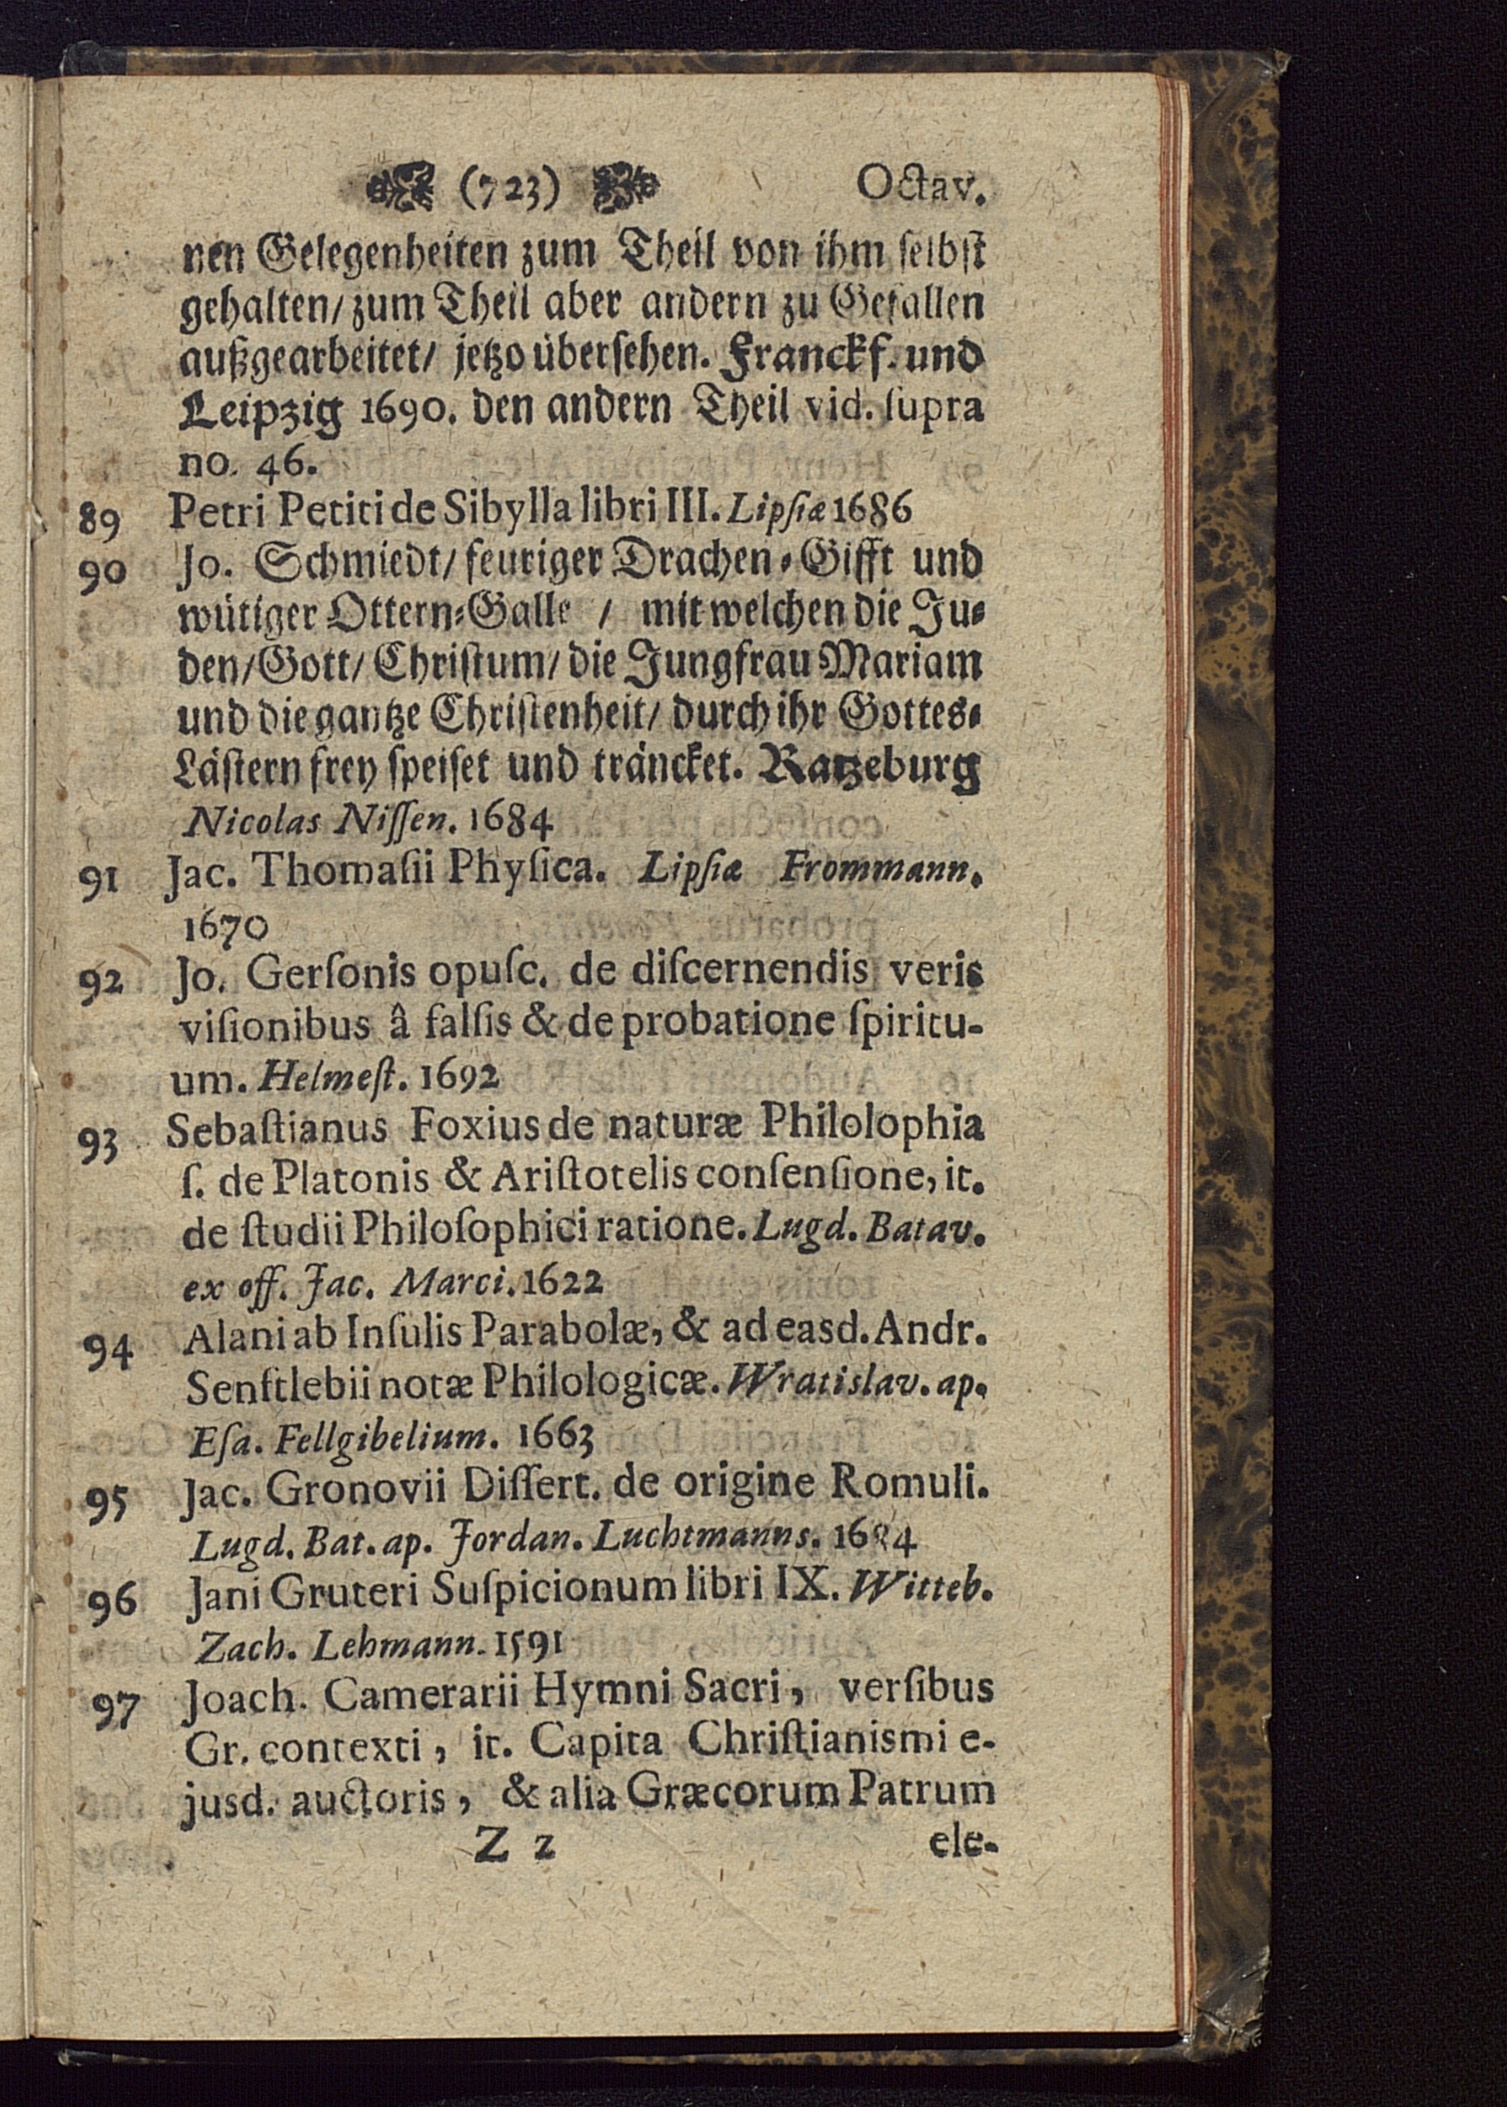 (723) Octav.
nen Gelegenheiten zum Theil von ihm ſelbſt
gehalten/ zum Theil aber andern zu Gefallen
außgearbeitet/ jetzo überſehen. Franckf. und
Leipzig 1690. den andern Theil vid. ſupra
no. 46.
89 Petri Petiti de Sibylla libri III. Lipſiæ 1686
90 Jo. Schmiedt/ feuriger Drachen-Gifft und
wütiger Ottern-Galle / mit welchen die Ju-
den/ Gott/ Chriſtum/ die Jungfrau Mariam
und die gantze Chriſtenheit/ durch ihr Gottes-
Läſtern frey ſpeiſet und träncket. Ratzeburg
Nicolas Niſſen. 1684
91 Jac. Thomaſii Phyſica. Lipſiæ Frommann.
1670
92 Jo. Gerſonis opuſc. de diſcernendis veris
viſionibus â falſis & de probatione ſpiritu-
um. Helmeſt. 1692
93 Sebaſtianus Foxius de naturæ Philolophia
ſ. de Platonis & Ariſtotelis conſenſione, it.
de ſtudii Philoſophici ratione. Lugd. Batav.
ex off. Jac. Marci. 1622
94 Alani ab Inſulis Parabolæ, & ad easd. Andr.
Senftlebii notæ Philologicæ. Wratislav. ap.
Eſa. Fellgibelium. 1663
95 Jac. Gronovii Diſſert. de origine Romuli.
Lugd. Bat. ap. Jordan. Luchtmanns. 1684
96 Jani Gruteri Suſpicionum libri IX. Witteb.
Zach. Lehmann. 1591
97 Joach. Camerarii Hymni Sacri, verſibus
Gr. contexti, it. Capita Chriſtianismi e-
jusd. auctoris, & alia Græcorum Patrum
Z z ele-